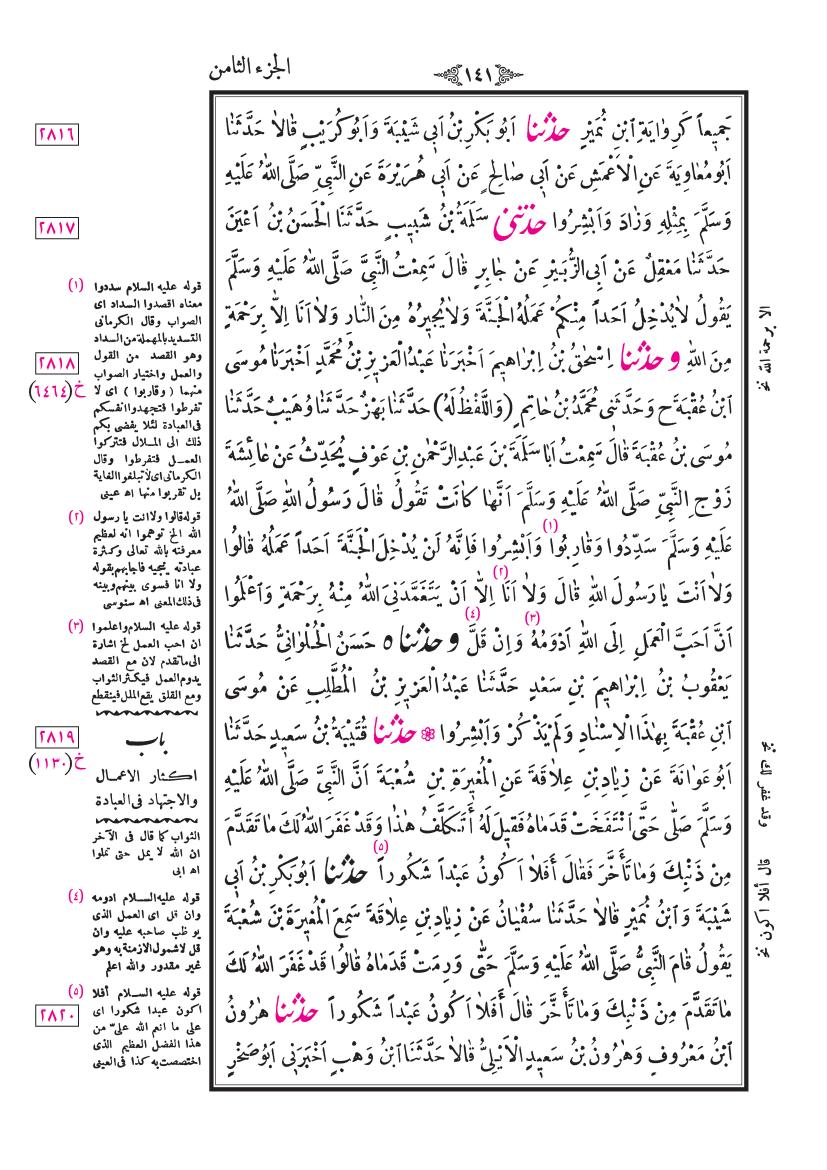 ١٤١
الجزء الثامن
جَمِيعاً كَرِوَايَةِ ٱبْنِ نُمَيْرٍ حدثنا اَبُو بَكْرِ بْنُ اَبِى شَيْبَةَ وَاَبُو كُرَيْبٍ قَالاَ حَدَّثَنَا
اَبُو مُعَاوِيَةَ عَنِ الْاَعْمَشِ عَنْ اَبِى صَالِحٍ عَنْ اَبِى هُرَيْرَةَ عَنِ النَّبِيِّ صَلَّى اللهُ عَلَيْهِ
وَسَلَّمَ بِمِثْلِهِ وَزَادَ وَاَبْشِرُوا حدثنى سَلَمَةُ بْنُ شَبِيبٍ حَدَّثَنَا الْحَسَنُ بْنُ اَعْيَنَ
حَدَّثَنَا مَعْقِلٌ عَنْ اَبِى الزُّبَيْرِ عَنْ جَابِرٍ قَالَ سَمِعْتُ النَّبِيَّ صَلَّى اللهُ عَلَيْهِ وَسَلَّمَ
يَقُولُ لاَيُدْخِلُ اَحَداً مِنْكُمْ عَمَلُهُ الْجَنَّةَ وَلاَيُجِيرُهُ مِنَ النَّارِ وَلاَ اَنَا اِلاَّ بِرَحْمَةٍ
مِنَ اللهِ و حدثنا اِسْحٰقُ بْنُ اِبْرَاهِيمَ اَخْبَرَنَا عَبْدُالْعَزِيزِ بْنُ مُحَمَّدٍ اَخْبَرَنَا مُوسَى
ابْنُ عُقْبَةَ ح وَحَدَّثَنِى مُحَمَّدُ بْنُ حَاتِمٍ (وَاللَّفْظُ لَهُ) حَدَّثَنَا بَهْزٌ حَدَّثَنَا وُهَيْبٌ حَدَّثَنَا
مُوسَى بْنُ عُقْبَةَ قَالَ سَمِعْتُ اَبَا سَلَمَةَ بْنَ عَبْدِ الرَّحْمٰنِ بْنِ عَوْفٍ يُحَدِّثُ عَنْ عَائِشَةَ
زَوْجِ النَّبِيِّ صَلَّى اللهُ عَلَيْهِ وَسَلَّمَ اَنَّهَا كَانَتْ تَقُولُ قَالَ رَسُولُ اللهِ صَلَّى اللهُ
عَلَيْهِ وَسَلَّمَ سَدِّدُوا وَقَارِبُوا (١) وَاَبْشِرُوا فَاِنَّهُ لَنْ يُدْخِلَ الْجَنَّةَ اَحَداً عَمَلُهُ قَالُوا
وَلاَ اَنْتَ يَا رَسُولَ اللهِ قَالَ وَلاَ اَنَا (٢) اِلاَّ اَنْ يَتَغَمَّدَنِىَ اللهُ مِنْهُ بِرَحْمَةٍ وَٱعْلَمُوا
اَنَّ اَحَبَّ الْعَمَلِ اِلَى اللهِ اَدْوَمُهُ (٣) وَاِنْ قَلَّ (٤) و حدثنا ه حَسَنُ الْحُلْوَانِيُّ حَدَّثَنَا
يَعْقُوبُ بْنُ اِبْرَاهِيمَ بْنِ سَعْدٍ حَدَّثَنَا عَبْدُ الْعَزِيزِ بْنُ الْمُطَّلِبِ عَنْ مُوسَى
ابْنِ عُقْبَةَ بِهٰذَا الْاِسْنَادِ وَلَمْ يَذْكُرْ وَاَبْشِرُوا ❁ حدثنا قُتَيْبَةُ بْنُ سَعِيدٍ حَدَّثَنَا
اَبُو عَوَانَةَ عَنْ زِيَادِ بْنِ عِلاَقَةَ عَنِ الْمُغِيرَةِ بْنِ شُعْبَةَ اَنَّ النَّبِيَّ صَلَّى اللهُ عَلَيْهِ
وَسَلَّمَ صَلَّى حَتَّى ٱنْتَفَخَتْ قَدَمَاهُ فَقِيلَ لَهُ أَتَكَلَّفُ هٰذَا وَقَدْ غَفَرَ اللهُ لَكَ مَا تَقَدَّمَ
مِنْ ذَنْبِكَ وَمَا تَأَخَّرَ فَقَالَ أَفَلاَ اَكُونُ عَبْداً شَكُوراً (٥) حدثنا اَبُو بَكْرِ بْنُ اَبِى
شَيْبَةَ وَٱبْنُ نُمَيْرٍ قَالاَ حَدَّثَنَا سُفْيَانُ عَنْ زِيَادِ بْنِ عِلاَقَةَ سَمِعَ الْمُغِيرَةَ بْنَ شُعْبَةَ
يَقُولُ قَامَ النَّبِيُّ صَلَّى اللهُ عَلَيْهِ وَسَلَّمَ حَتَّى وَرِمَتْ قَدَمَاهُ قَالُوا قَدْ غَفَرَ اللهُ لَكَ
مَا تَقَدَّمَ مِنْ ذَنْبِكَ وَمَا تَأَخَّرَ قَالَ أَفَلاَ اَكُونُ عَبْداً شَكُوراً حدثنا هٰرُونُ
ابْنُ مَعْرُوفٍ وَهٰرُونُ بْنُ سَعِيدٍ الْاَيْلِيُّ قَالاَ حَدَّثَنَا ابْنُ وَهْبٍ اَخْبَرَنِى اَبُو صَخْرٍ
الا برحمة الله نخ
وقد غفر لك نخ
قال أفلا اكون نخ
٢٨١٦
٢٨١٧
٢٨١٨
خ(٦٤٦٤)
٢٨١٩
خ(١١٣٠)
٢٨٢٠
(١) قوله عليه السلام سددوا
معناه اقصدوا السداد اى
الصواب وقال الكرمانى
التسديد بالمهملة من السداد
وهو القصد من القول
والعمل واختيار الصواب
منهما ( وقاربوا ) اى لا
تفرطوا فتجهدوا انفسكم
فى العبادة لئلا يفضى بكم
ذلك الى الملال فتتركوا
العمل فتفرطوا وقال
الكرمانى اى لاتبلغوا الغاية
بل تقربوا منها اه عينى
(٢) قوله قالوا ولا انت يا رسول
الله الخ توهموا انه لعظيم
معرفته بالله تعالى وكثرة
عبادته ينجيه فاجابهم بقوله
ولا انا فسوى بينهم وبينه
فى ذلك المعنى اه سنوسى
(٣) قوله عليه السلام واعلموا
ان احب العمل الخ اشارة
الى ما تقدم لان مع القصد
يدوم العمل فيكثر الثواب
ومع القلق يقع الملل فينقطع
باب
اكثار الاعمال
والاجتهاد فى العبادة
الثواب كما قال فى الآخر
ان الله لا يمل حتى تملوا
اه ابى
(٤) قوله عليه السلام ادومه
وان قل اى العمل الذى
يوظب صاحبه عليه وان
قل لا شمول الازمنة به وهو
غير مقدور والله اعلم
(٥) قوله عليه السلام أفلا
اكون عبدا شكورا اى
على ما انعم الله علىّ من
هذا الفضل العظيم الذى
اختصصت به كذا فى العينى